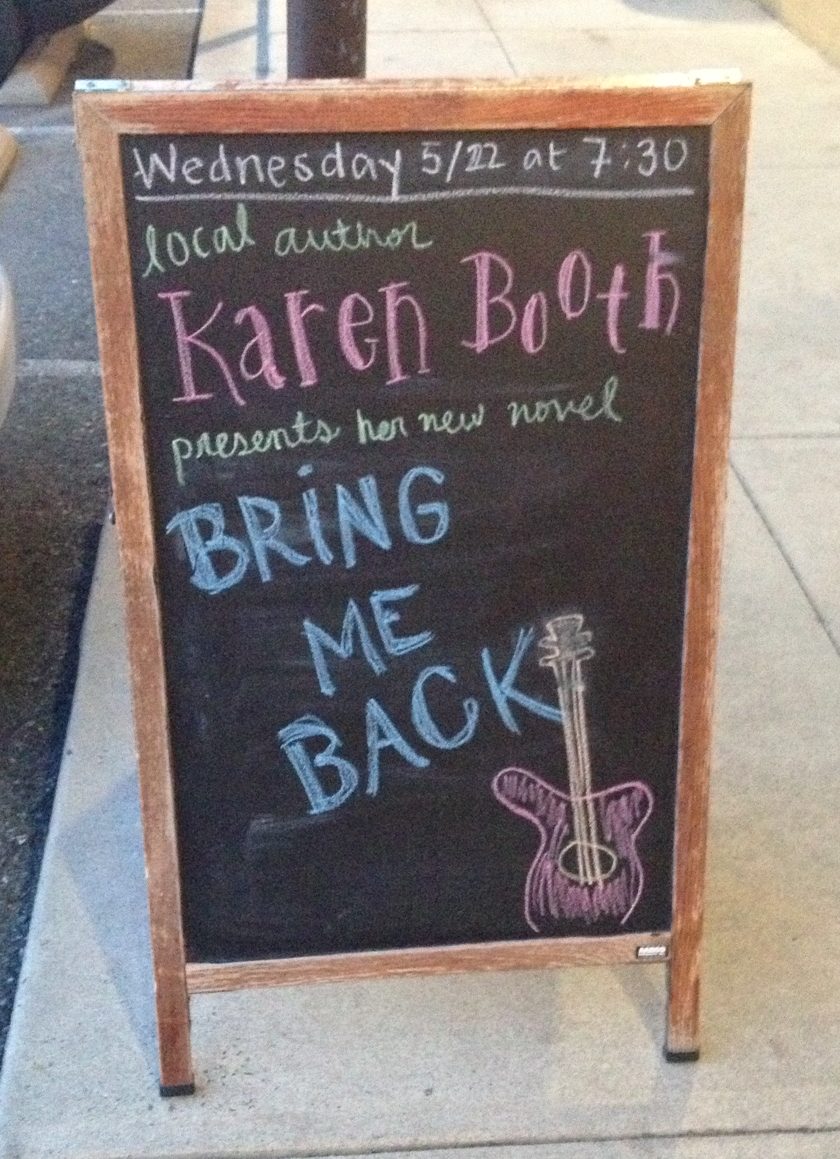 Wednesday 5/22 at 7:30
local author
Karen Booth
presents her new novel
BRiNG
ME
BACK